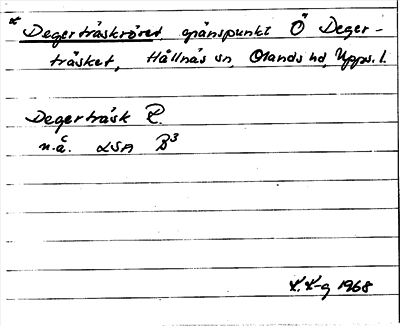 * Degerträskröret, gränspunkt Ö Deger-
träsket, Hållnäs sn, Olands hd, Upps. l.
Degerträsk R.
n.å. LSA B³
K.K-g 1968